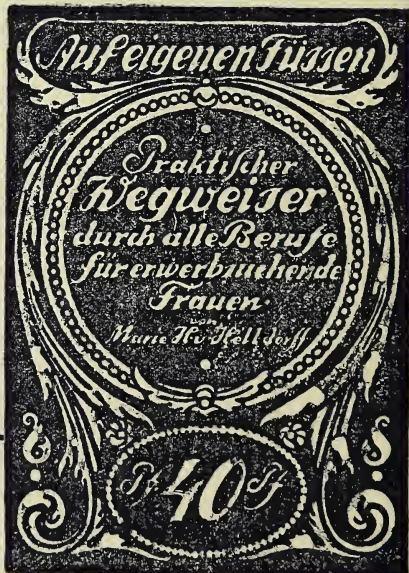 Auf eigenen Füssen
Praktischer
Wegweiser
durch alle Berufe
für erwerbsuchende
Frauen.
von
Marie H. v. Helldorff.
Pf 40 Pf